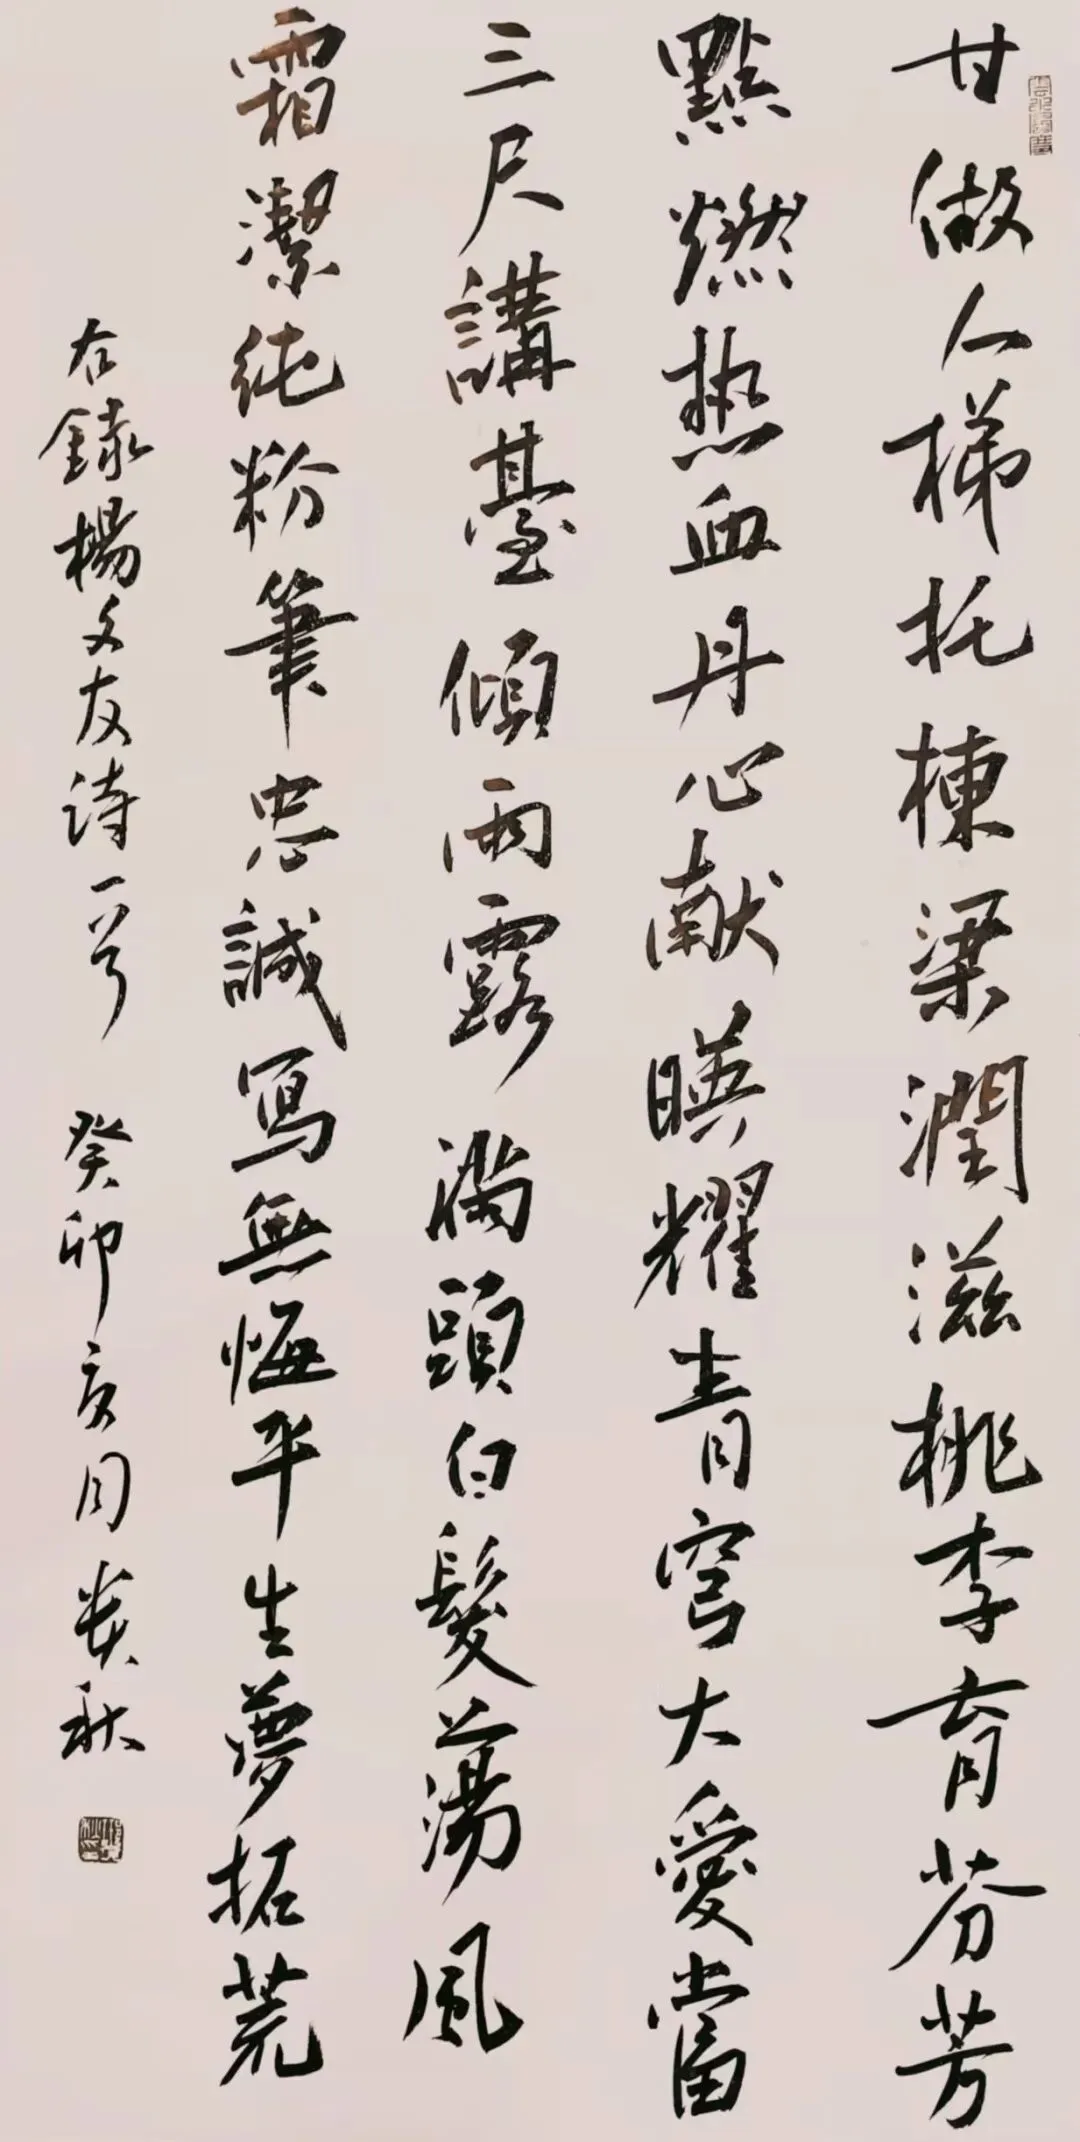 甘做人梯托棟梁潤滋桃李育芬芳
點燃热血丹心献暎耀青穹大愛當
三尺講臺傾雨露滿頭白髮蕩風
霜潔純粉筆忠誠寫無悔平生夢拓荒
右錄楊文友诗一首 癸卯亥月 秋